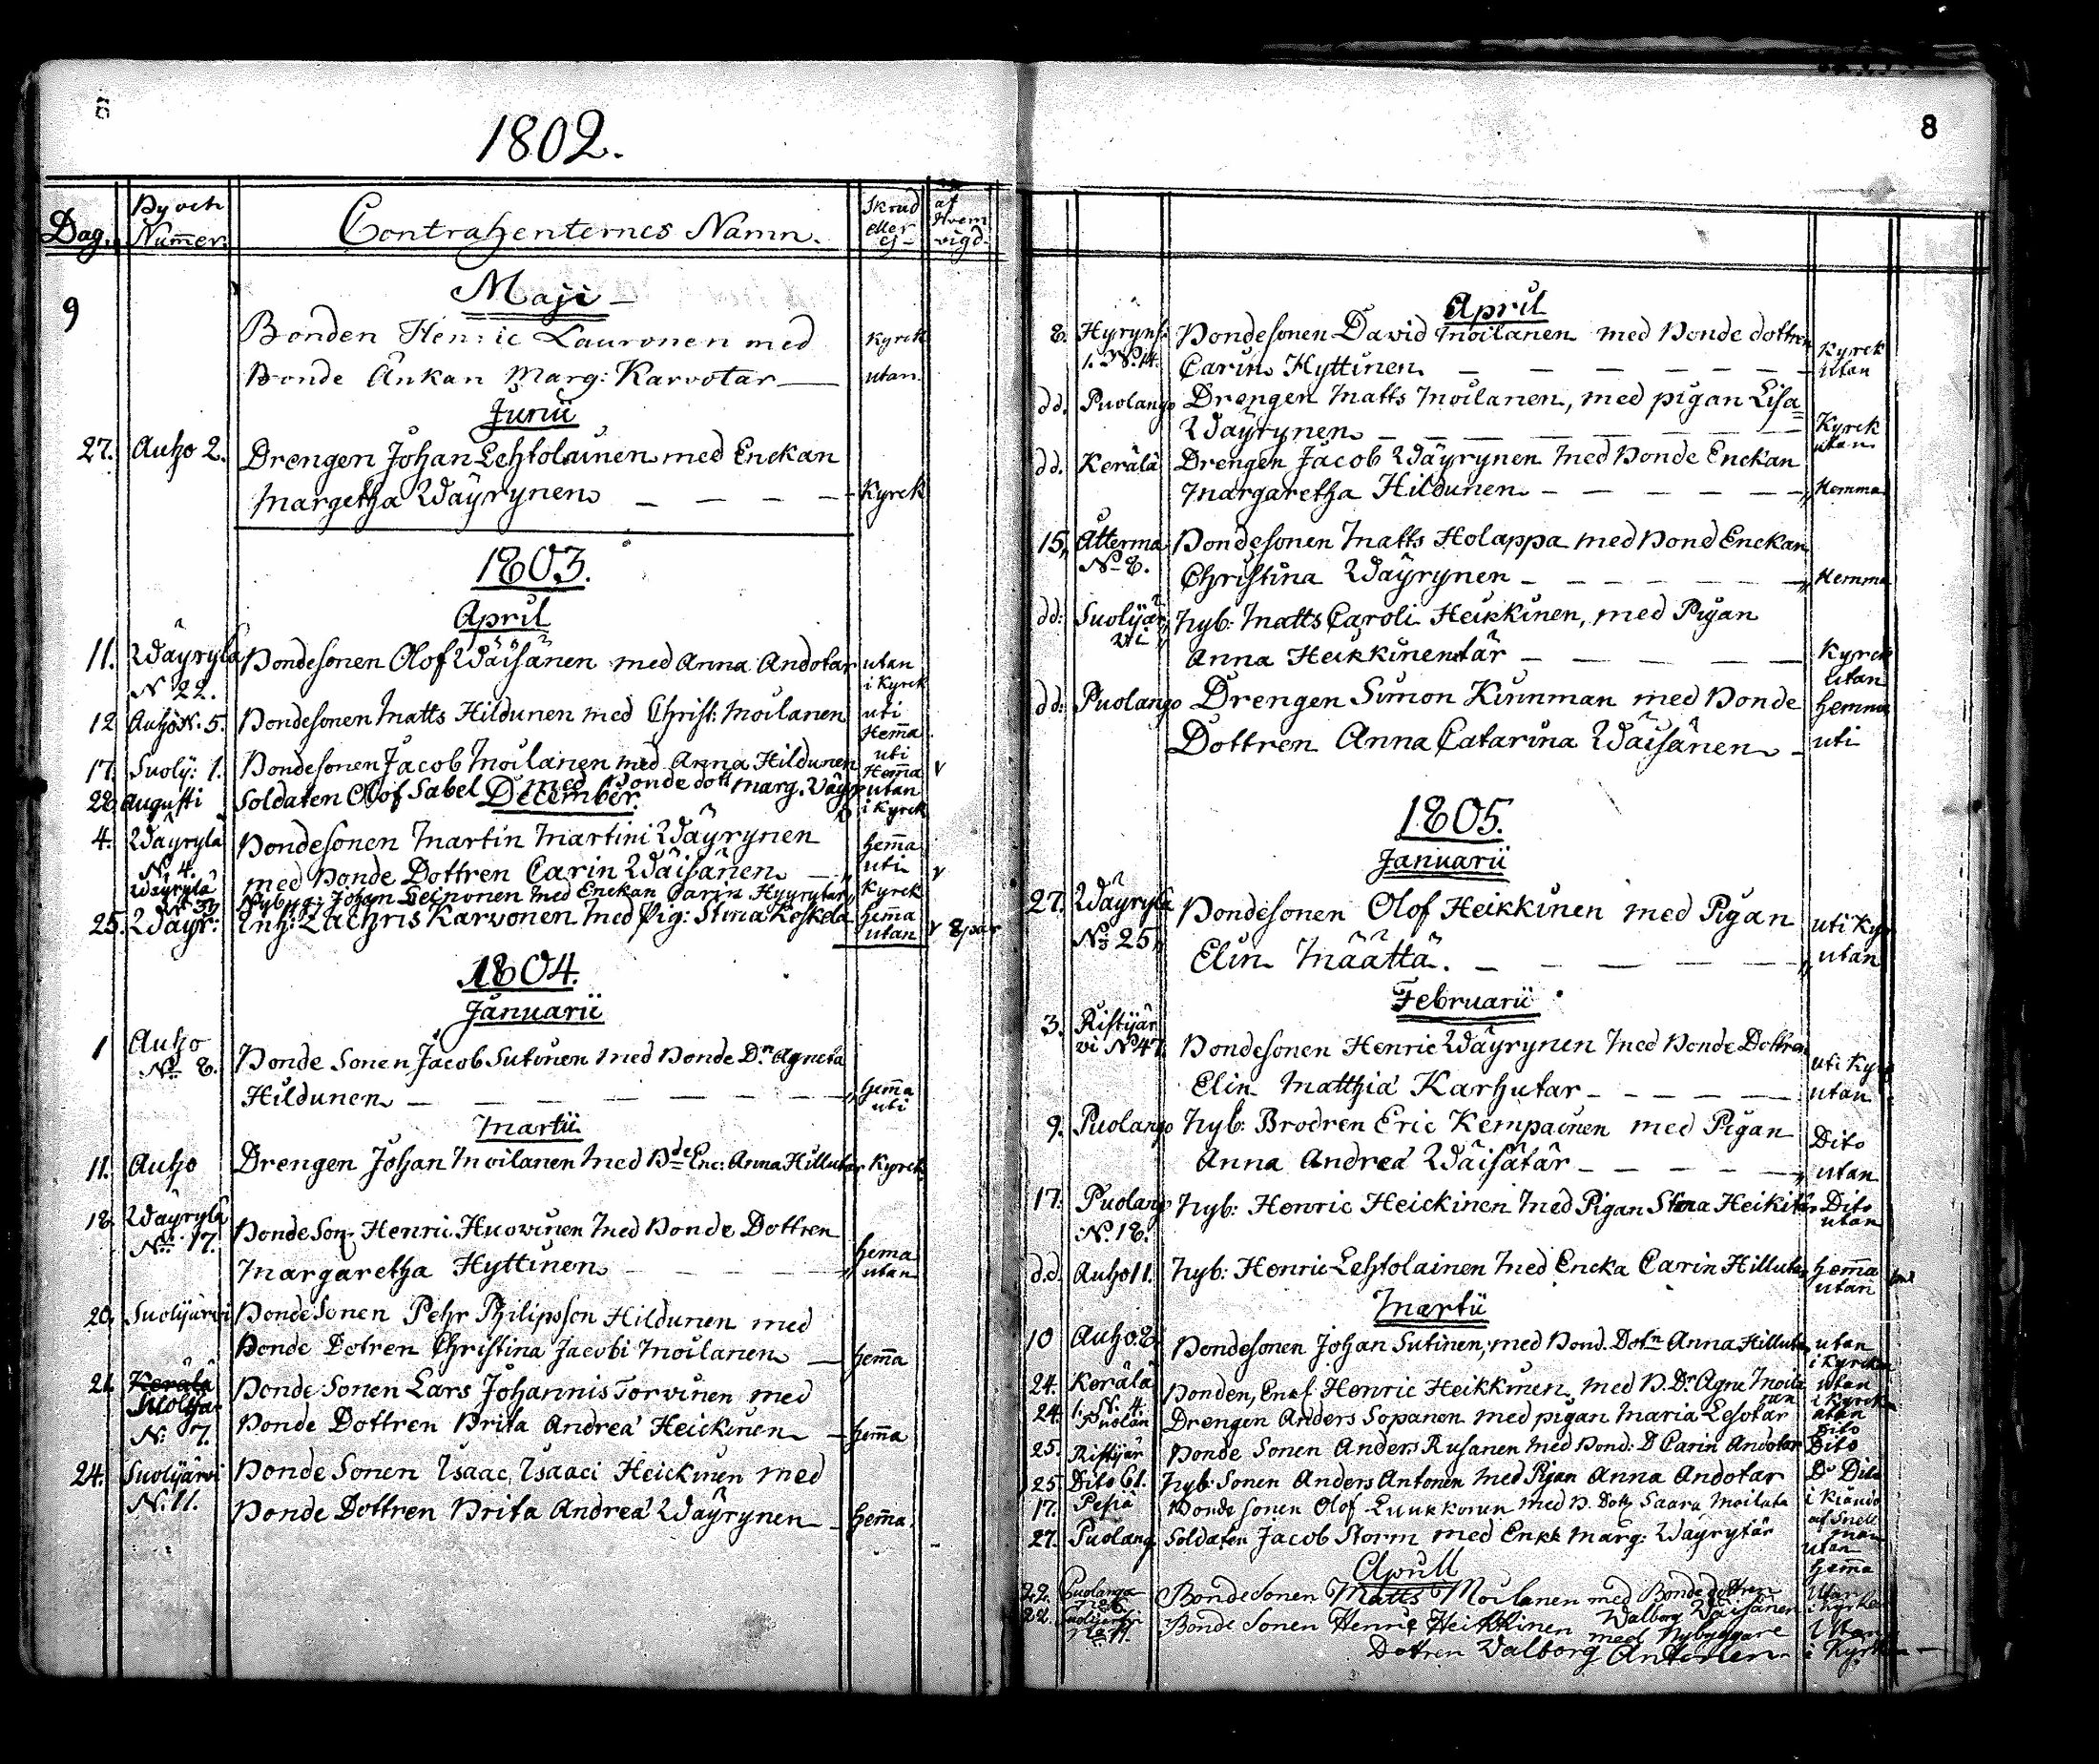 6
1802.
Dag. By och Nummer. Contrahenternes Namn. Skrud eller ej- af Hvem vigd.
Maji
9 Bonden Henric Lauronen med Kyrck
Bonde Änkan Marg: Karvotar utan
Junii
27. Auho 2. Drengen Johan Lehtolainen med Enckan
Margetha Wäyrynen Kyrck
1803.
April
11. Wäyrylä Bondesonen Olof Wäisänen med Anna Andotar utan
N 22. i Kyrck
12 Auho N. 5. Bondesonen Matts Hildunen med Christ: Moilanen uti
Hem̄a
17. Suolij: 1. Bondesonen Jacob Moilanen med Anna Hildunen uti Hem̄a v
28 Augusti Soldaten Olof Sabel med Bonde dott Marg. Väyr utan
i Kyrck
December.
4. Wäyrylä Bondesonen Martin Martini Wäyrynen hem̄a
N. 4. med Bonde Dottren Carin Wäisänen uti v
Wäyrylä Nybyg: Johan Leinonen med Enckan Carin Hyyrytar Kyrck
25. Wäyr: Inh: Zachris Karvonen med Pig: Stina Koskela hem̄a
utan v 8 par
1804.
Januarii
1 Auho Bonde Sonen Jacob Sutinen med Bonde Dn Agneta
No 8.
Hildunen hem̄a
uti
Martii
11. Auho Drengen Johan Moilanen med Bde Enc: Anna Hillutar Kyrck
18 Wäyrylä Bonde Son Henric Huovinen med Bonde Dottren
No 17. hema
Margaretha Hyttinen utan
20. Suolijärvi Bonde Sonen Pehr Philipsson Hildunen med
Bonde Dotren Christina Jacobi Moilanen hem̄a
21. Kerälä Bonde Sonen Lars Johannis Torvinen med
Suolijär
N: 7. Bonde Dottren Brita Andreæ Heickinen hem̄a
24. Suolijärvi Bonde Sonen Isaac Isaaci Heickinen med
N. 11. Bonde Dottren Brita Andreæ Wäyrynen hem̄a.
8
April
8. Hyryns: Bondesonen David Moilanen med Bonde dottren
1. N. 14. Carin Hyttinen Kyrck
utan
dd. Puolango Drengen Matts Moilanen, med pigan Lisa
Wäyrynen Kyrck
utan
dd. Kerälä Drengen Jacob Wäyrynen med Bonde Enckan
Margaretha Hildunen Hemma
15. Älterma Bondesonen Matts Holappa med Bond Enckan
No 8. Christina Wäyrynen Hemma
dd: Suolijär Nyb: Matts Caroli Heikkinen, med Pigan
vi Anna Heikkinentär Kyrck
utan
dd: Puolango Drengen Simon Kinnman med Bonde hemma
Dottren Anna Catarina Wäisänen uti
1805.
Januarii
27. Wäyrylä Bondesonen Olof Heikkinen med Pigan uti Kyr
No 25 Elin Määttä. utan
Februarii
3. Ristijär Bondesonen Henric Wäyrynen med Bonde Dottren
vi No 47. uti Kyr
Elin Matthiæ Karhutar utan
9. Puolango Nyb: Brodren Eric Kempainen med Pigan Dito
Anna Andreæ Wäisätär utan
17. Puolango Nyb: Henric Heickinen med Pigan Stina Heikitär Dito
N. 18. utan
d.d. Auho 11. Nyb: Henric Lehtolainen med Encka Carin Hillutar hem̄a
utan
Martii
10 Auho 8 Bondesonen Johan Sutinen, med Bond. Dotn Anna Hillutar utan
i Kyrckan
24. Kerälä Bonden, Enkl. Henric Heikkinen med B. Dr Agne Moila utan
1. N. 4. nan i Kyrcka
24. Puolan Drengen Anders Sopanen med pigan Maria Lesotar utan
Dito
25. Ristijär Bonde Sonen Anders Rusanen med Bond: D Carin Andotar Dito
25 Dito 61. Nyb: Sonen Anders Antonen med Pigan Anna Andotar Do Dito
17. Pesiä Bonde Sonen Olof Luukkonen med B. Dotr Saara Moilata i Kiändo
af Snell
man
27. Puolang Soldaten Jacob Storm med Enk: Marg: Wäyrytär utan
hem̄a
Aprill
22. Puolanga Bondesonen Matts Moilanen med Bonde dottren Utan
No 6. Walborg Väisänen i Kyrkan
22. Suolijervi Bonde Sonen Henric Heikkinen med Nybyggare Utan
No 11. Dotren Walborg Antonen i Kyrkan